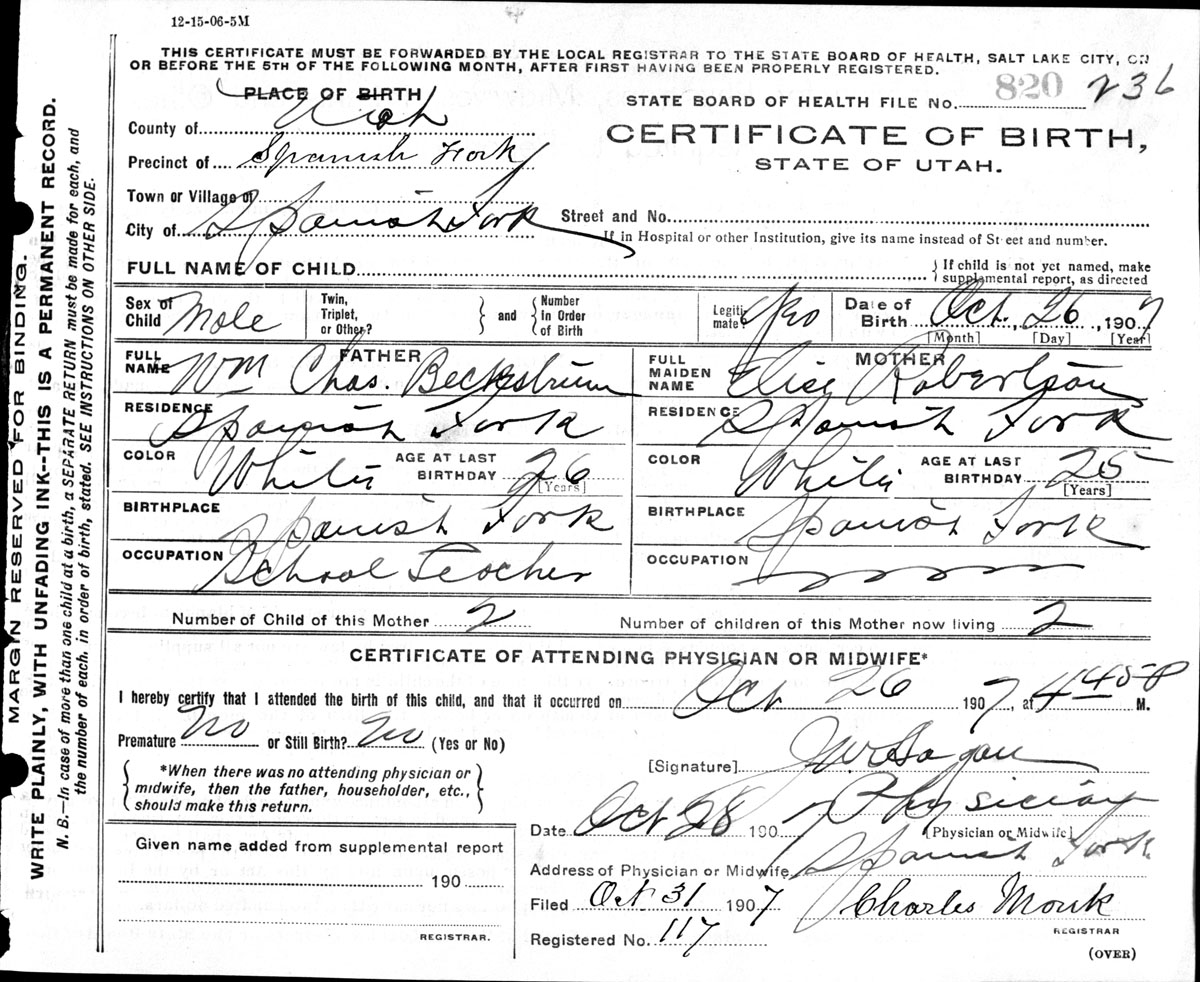 12-15-06-5M
THIS CERTIFICATE MUST BE FORWARDED BY THE LOCAL REGISTRAR TO THE STATE BOARD OF HEALTH, SALT LAKE CITY, ON
OR BEFORE THE 5TH OF THE FOLLOWING MONTH, AFTER FIRST HAVING BEEN PROPERLY REGISTERED.
PLACE OF BIRTH
STATE BOARD OF HEALTH FILE No. 820 236
County of Utah
CERTIFICATE OF BIRTH,
STATE OF UTAH.
Precinct of Spanish Fork
Town or Village of
City of Spanish Fork
Street and No.
If in Hospital or other Institution, give its name instead of Street and number.
FULL NAME OF CHILD
If child is not yet named, make
supplemental report, as directed
Sex of Child Male
Twin, Triplet, or Other? and Number in Order of Birth
Legitimate?
Date of Birth Oct. 26, 1907
[Month] [Day] [Year]
FATHER
FULL NAME Wm Chas. Beckstrum
MOTHER
FULL MAIDEN NAME Robertson
RESIDENCE Spanish Fork
RESIDENCE Spanish Fork
COLOR White AGE AT LAST BIRTHDAY 26 [Years]
COLOR White AGE AT LAST BIRTHDAY 25 [Years]
BIRTHPLACE Spanish Fork
BIRTHPLACE Spanish Fork
OCCUPATION School Teacher
OCCUPATION
Number of Child of this Mother 2
Number of children of this Mother now living 2
CERTIFICATE OF ATTENDING PHYSICIAN OR MIDWIFE*
I hereby certify that I attended the birth of this child, and that it occurred on Oct 26 1907, at 4 45 P M.
Premature No or Still Birth? No (Yes or No)
*When there was no attending physician or
midwife, then the father, householder, etc.,
should make this return.
[Signature]
Physician
Date Oct 28 1907
[Physician or Midwife]
Address of Physician or Midwife Spanish Fork
Filed Oct 31 1907 Charles Monk
REGISTRAR
Registered No. 117
(OVER)
Given name added from supplemental report
190
REGISTRAR.
MARGIN RESERVED FOR BINDING.
WRITE PLAINLY, WITH UNFADING INK--THIS IS A PERMANENT RECORD.
N. B.--In case of more than one child at a birth, a SEPARATE RETURN must be made for each, and
the number of each, in order of birth, stated. SEE INSTRUCTIONS ON OTHER SIDE.